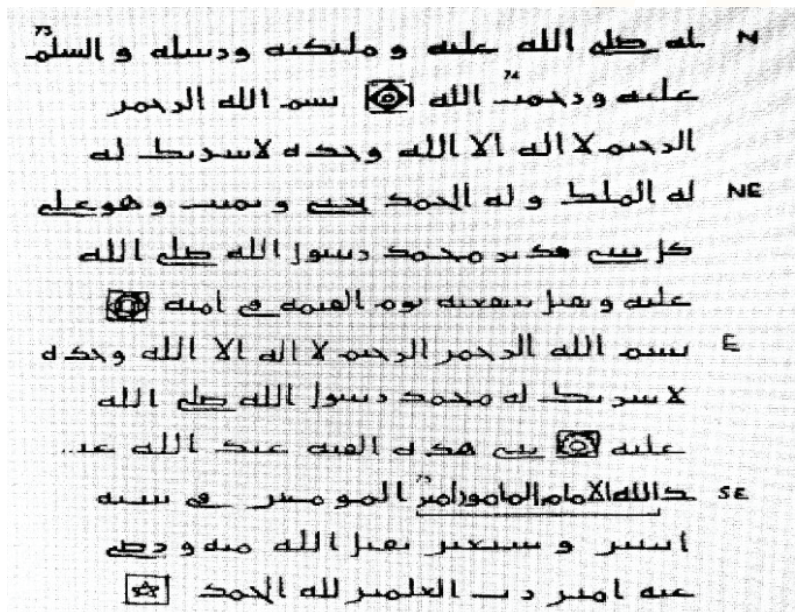 N له صلى الله عليه و ملئكته ورسله و السلم 73
عليه ورحمت 74 الله بسم الله الرحمن
الرحيم لا اله الا الله وحده لا شريك له
NE له الملك و له الحمد يحيي و يميت و هو على
كل شي قدير محمد رسول الله صلى الله
عليه و يقبل شفعته يوم القيمة في امته
E بسم الله الرحمن الرحيم لا اله الا الله وحده
لا شريك له محمد رسول الله صلى الله
عليه بنى هذه القبة عبد الله عبـ..
SE د الله الامام المامون امير 75 المومنين في سنة
اثنين و سبعين يقبل الله منه و رضي
عنه امين رب العلمين لله الحمد